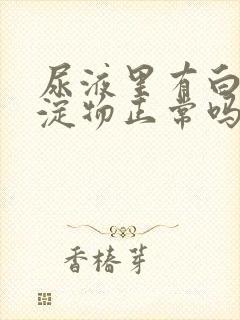 尿液里有白
淀物正常吗
香椿芽